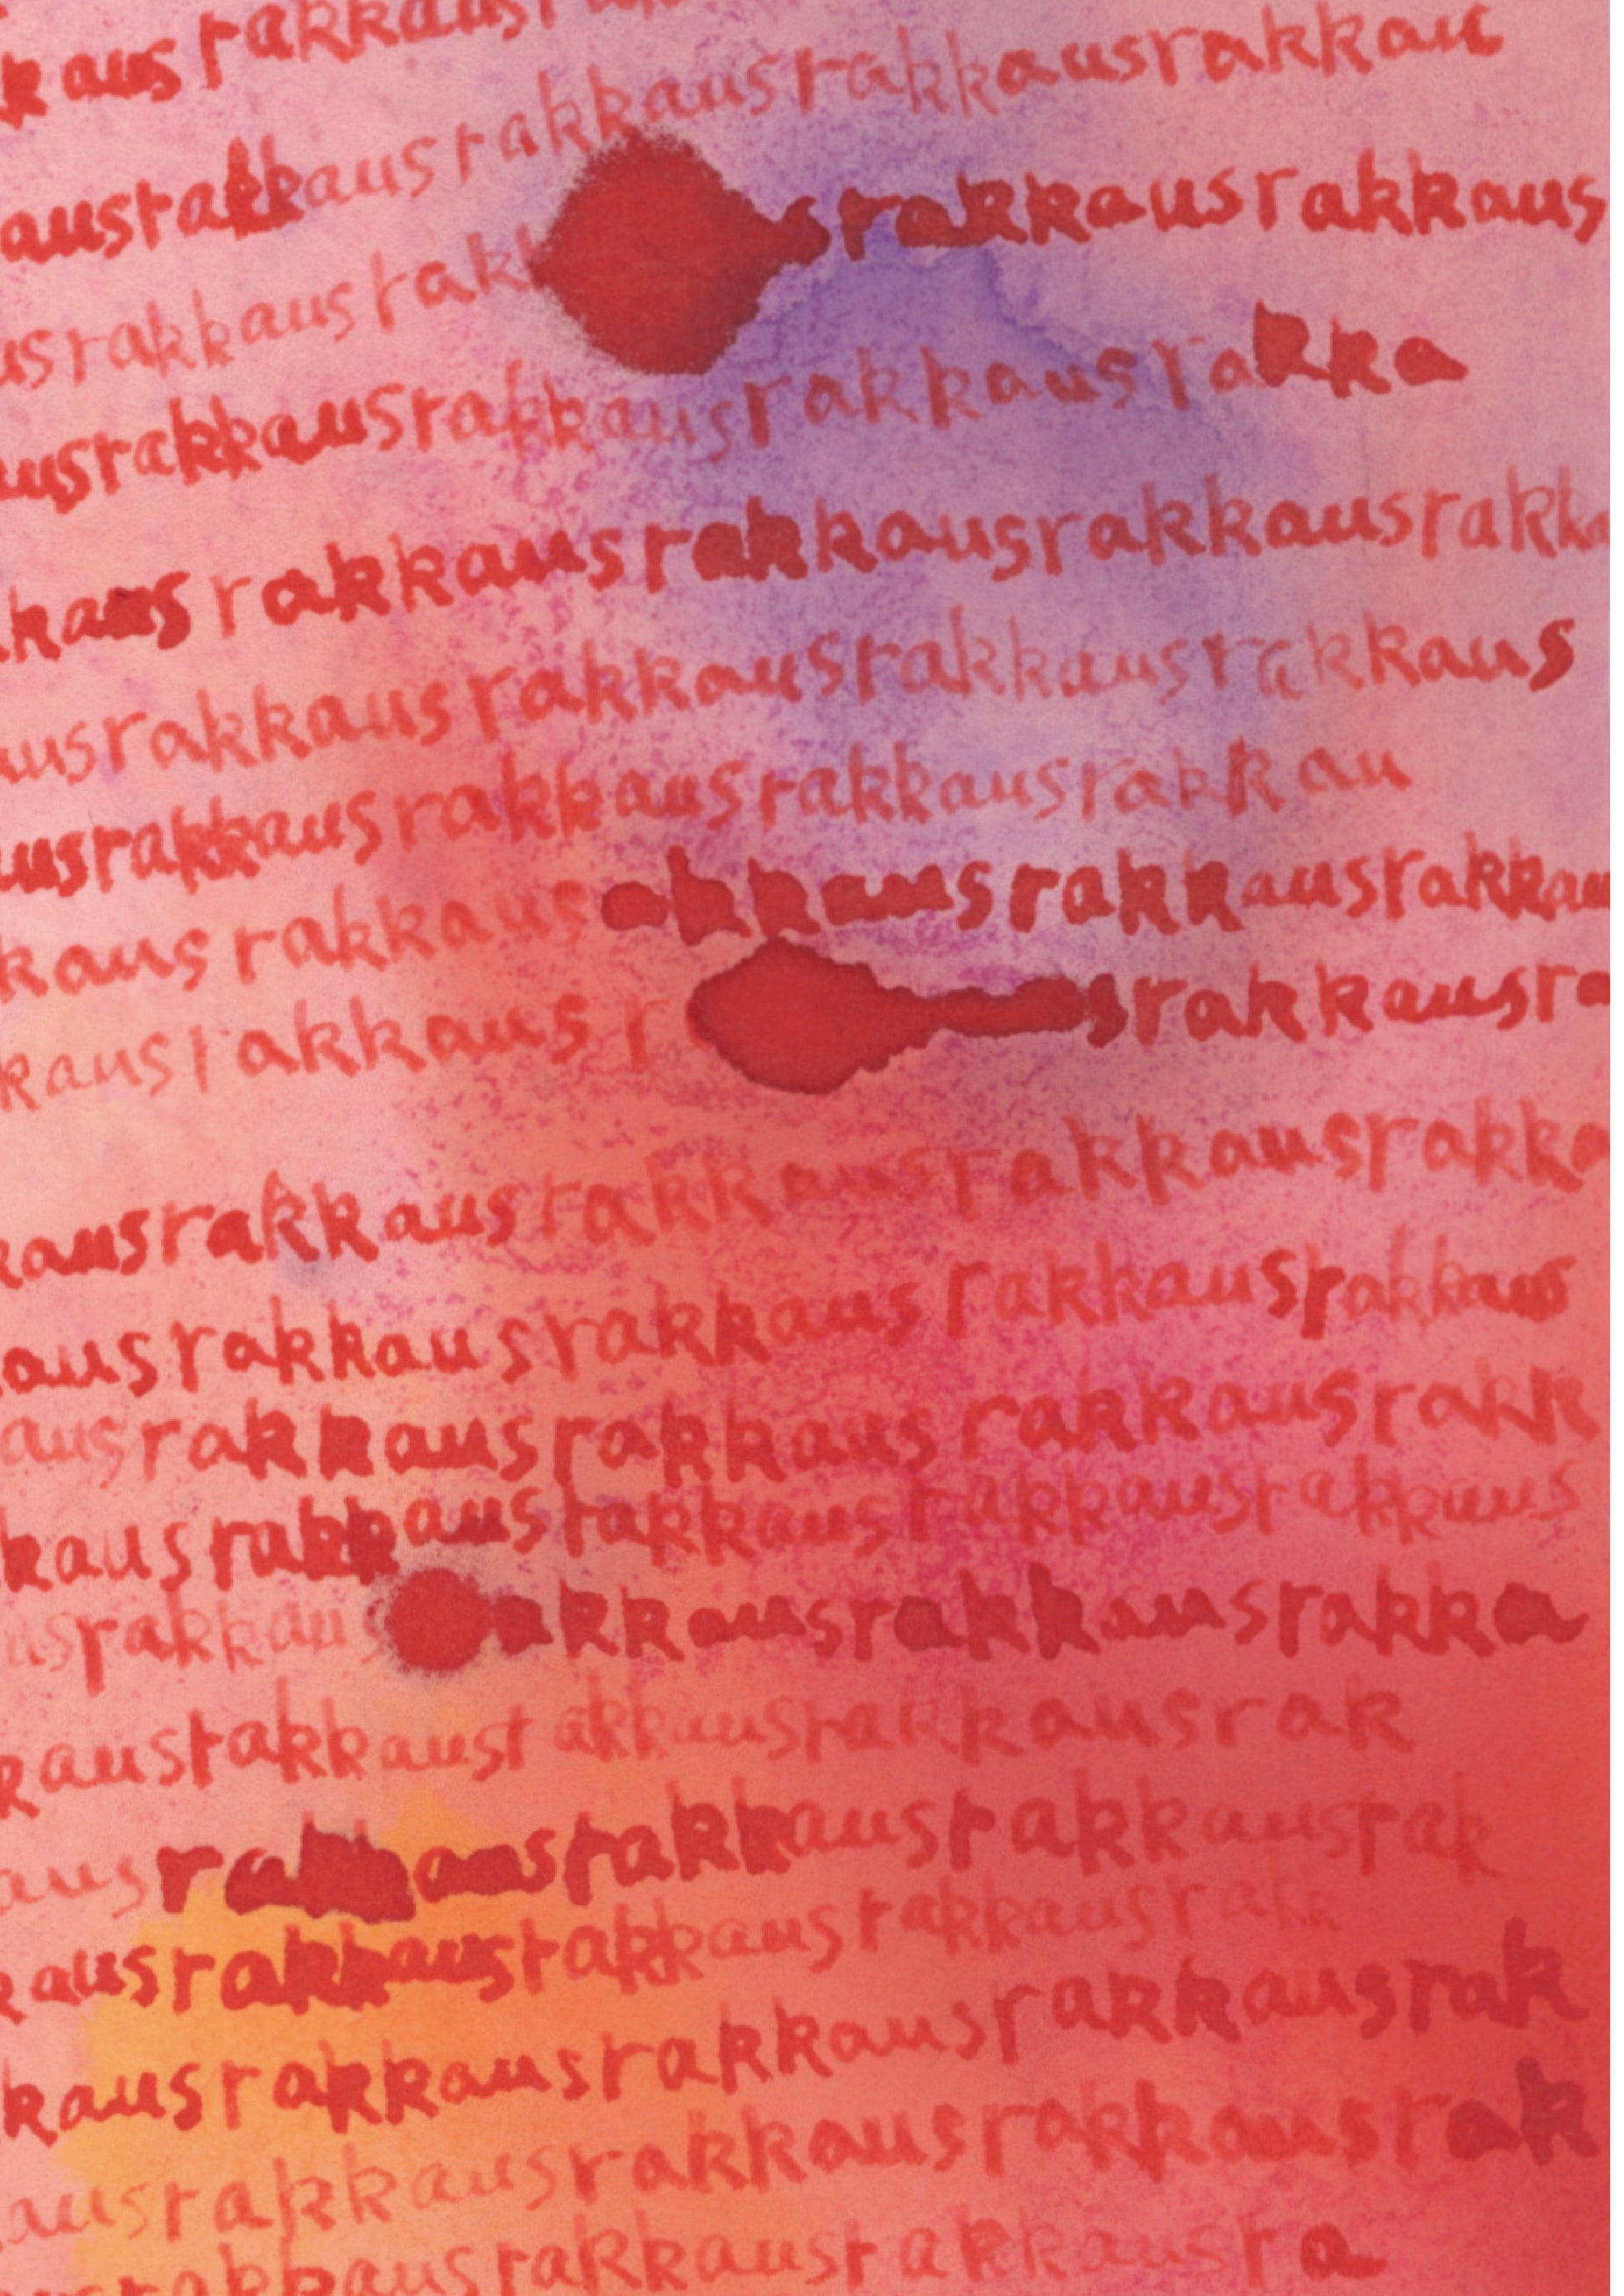 kausrakkausrak
austakkausrakkausrakkausrakkau
usrakkausrakk srakkausrakkaus
usrakkausrakkausrakkausrakka
kausrakkausrakkausrakkausrakka
usrakkausrakkausrakkausrakkaus
usrakkausrakkausrakkausrakkau
kausrakkausakkausrakkausrakkau
kausrakkausr srakkausra
kausrakkausrakkausrakkausrakka
ausrakkausrakkausrakkausrakkaus
ausrakkausrakkausrakkausrakk
kausrakkausrakkausrakkausrakkaus
usrakkaus akkausrakkausrakka
kausrakkausrakkausrakkausrak
ausrakkausrakkausrakkausrak
kausrakkausrakkausrakkausrak
kausrakkausrakkausrakkausrak
ausrakkausrakkausrakkausrak
usrakkausrakkausrakkausra